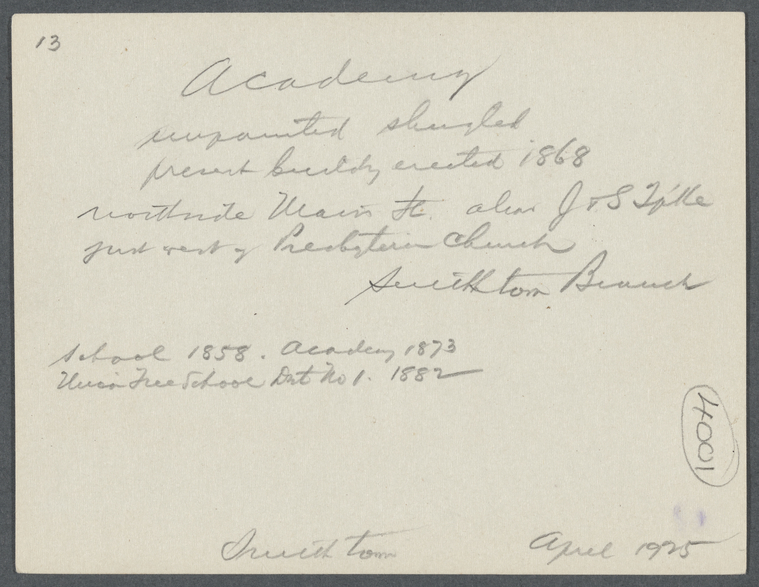 13
Academy
unpainted shingled
present building erected 1868
northside Main St. alias J & S Tpke
just west of Presbyterian Church
Smithtown Branch
School 1858. Academy 1873
Union Free School Dist No 1. 1882
4001
Smithtown April 1925